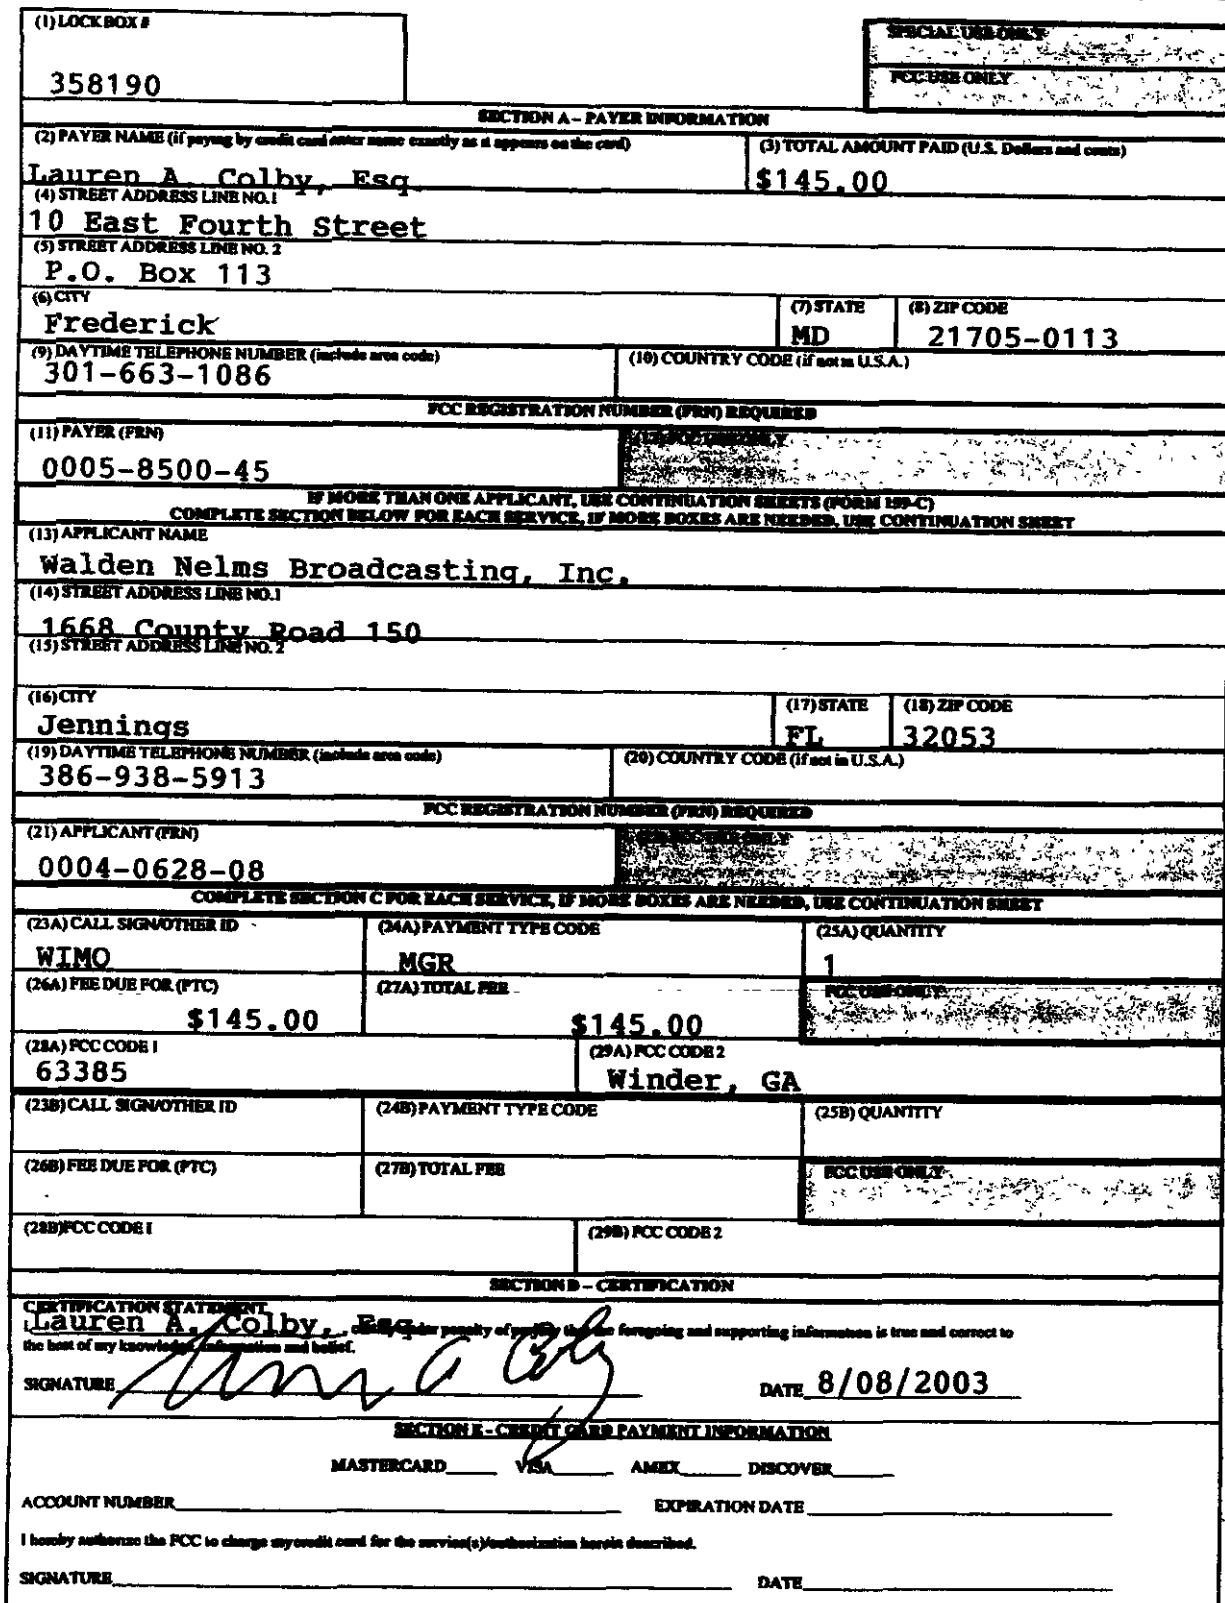 (1) LOCK BOX #
358190
SPECIAL USE ONLY
FCC USE ONLY
SECTION A – PAYER INFORMATION
(2) PAYER NAME (if paying by credit card enter name exactly as it appears on the card)
(3) TOTAL AMOUNT PAID (U.S. Dollars and cents)
Lauren A. Colby, Esq.
$145.00
(4) STREET ADDRESS LINE NO.1
10 East Fourth Street
(5) STREET ADDRESS LINE NO. 2
P.O. Box 113
(6) CITY
(7) STATE
(8) ZIP CODE
Frederick
MD
21705-0113
(9) DAYTIME TELEPHONE NUMBER (include area code)
(10) COUNTRY CODE (if not in U.S.A.)
301-663-1086
FCC REGISTRATION NUMBER (FRN) REQUIRED
(11) PAYER (FRN)
(12) FCC USE ONLY
0005-8500-45
IF MORE THAN ONE APPLICANT, USE CONTINUATION SHEETS (FORM 159-C)
COMPLETE SECTION BELOW FOR EACH SERVICE, IF MORE BOXES ARE NEEDED, USE CONTINUATION SHEET
(13) APPLICANT NAME
Walden Nelms Broadcasting, Inc.
(14) STREET ADDRESS LINE NO.1
1668 County Road 150
(15) STREET ADDRESS LINE NO. 2
(16) CITY
(17) STATE
(18) ZIP CODE
Jennings
FL
32053
(19) DAYTIME TELEPHONE NUMBER (include area code)
(20) COUNTRY CODE (if not in U.S.A.)
386-938-5913
FCC REGISTRATION NUMBER (FRN) REQUIRED
(21) APPLICANT (FRN)
USE ONLY
0004-0628-08
COMPLETE SECTION C FOR EACH SERVICE, IF MORE BOXES ARE NEEDED, USE CONTINUATION SHEET
(23A) CALL SIGN/OTHER ID
(24A) PAYMENT TYPE CODE
(25A) QUANTITY
WIMO
MGR
1
(26A) FEE DUE FOR (PTC)
(27A) TOTAL FEE
FCC USE ONLY
$145.00
$145.00
(28A) FCC CODE 1
(29A) FCC CODE 2
63385
Winder, GA
(23B) CALL SIGN/OTHER ID
(24B) PAYMENT TYPE CODE
(25B) QUANTITY
(26B) FEE DUE FOR (PTC)
(27B) TOTAL FEE
FCC USE ONLY
(28B) FCC CODE 1
(29B) FCC CODE 2
SECTION D – CERTIFICATION
CERTIFICATION STATEMENT
I, Lauren A. Colby, Esq. certify under penalty of perjury that the foregoing and supporting information is true and correct to
the best of my knowledge, information and belief.
SIGNATURE
DATE 8/08/2003
SECTION E - CREDIT CARD PAYMENT INFORMATION
MASTERCARD VISA AMEX DISCOVER
ACCOUNT NUMBER EXPIRATION DATE
I hereby authorize the FCC to charge my credit card for the service(s)/authorization herein described.
SIGNATURE DATE